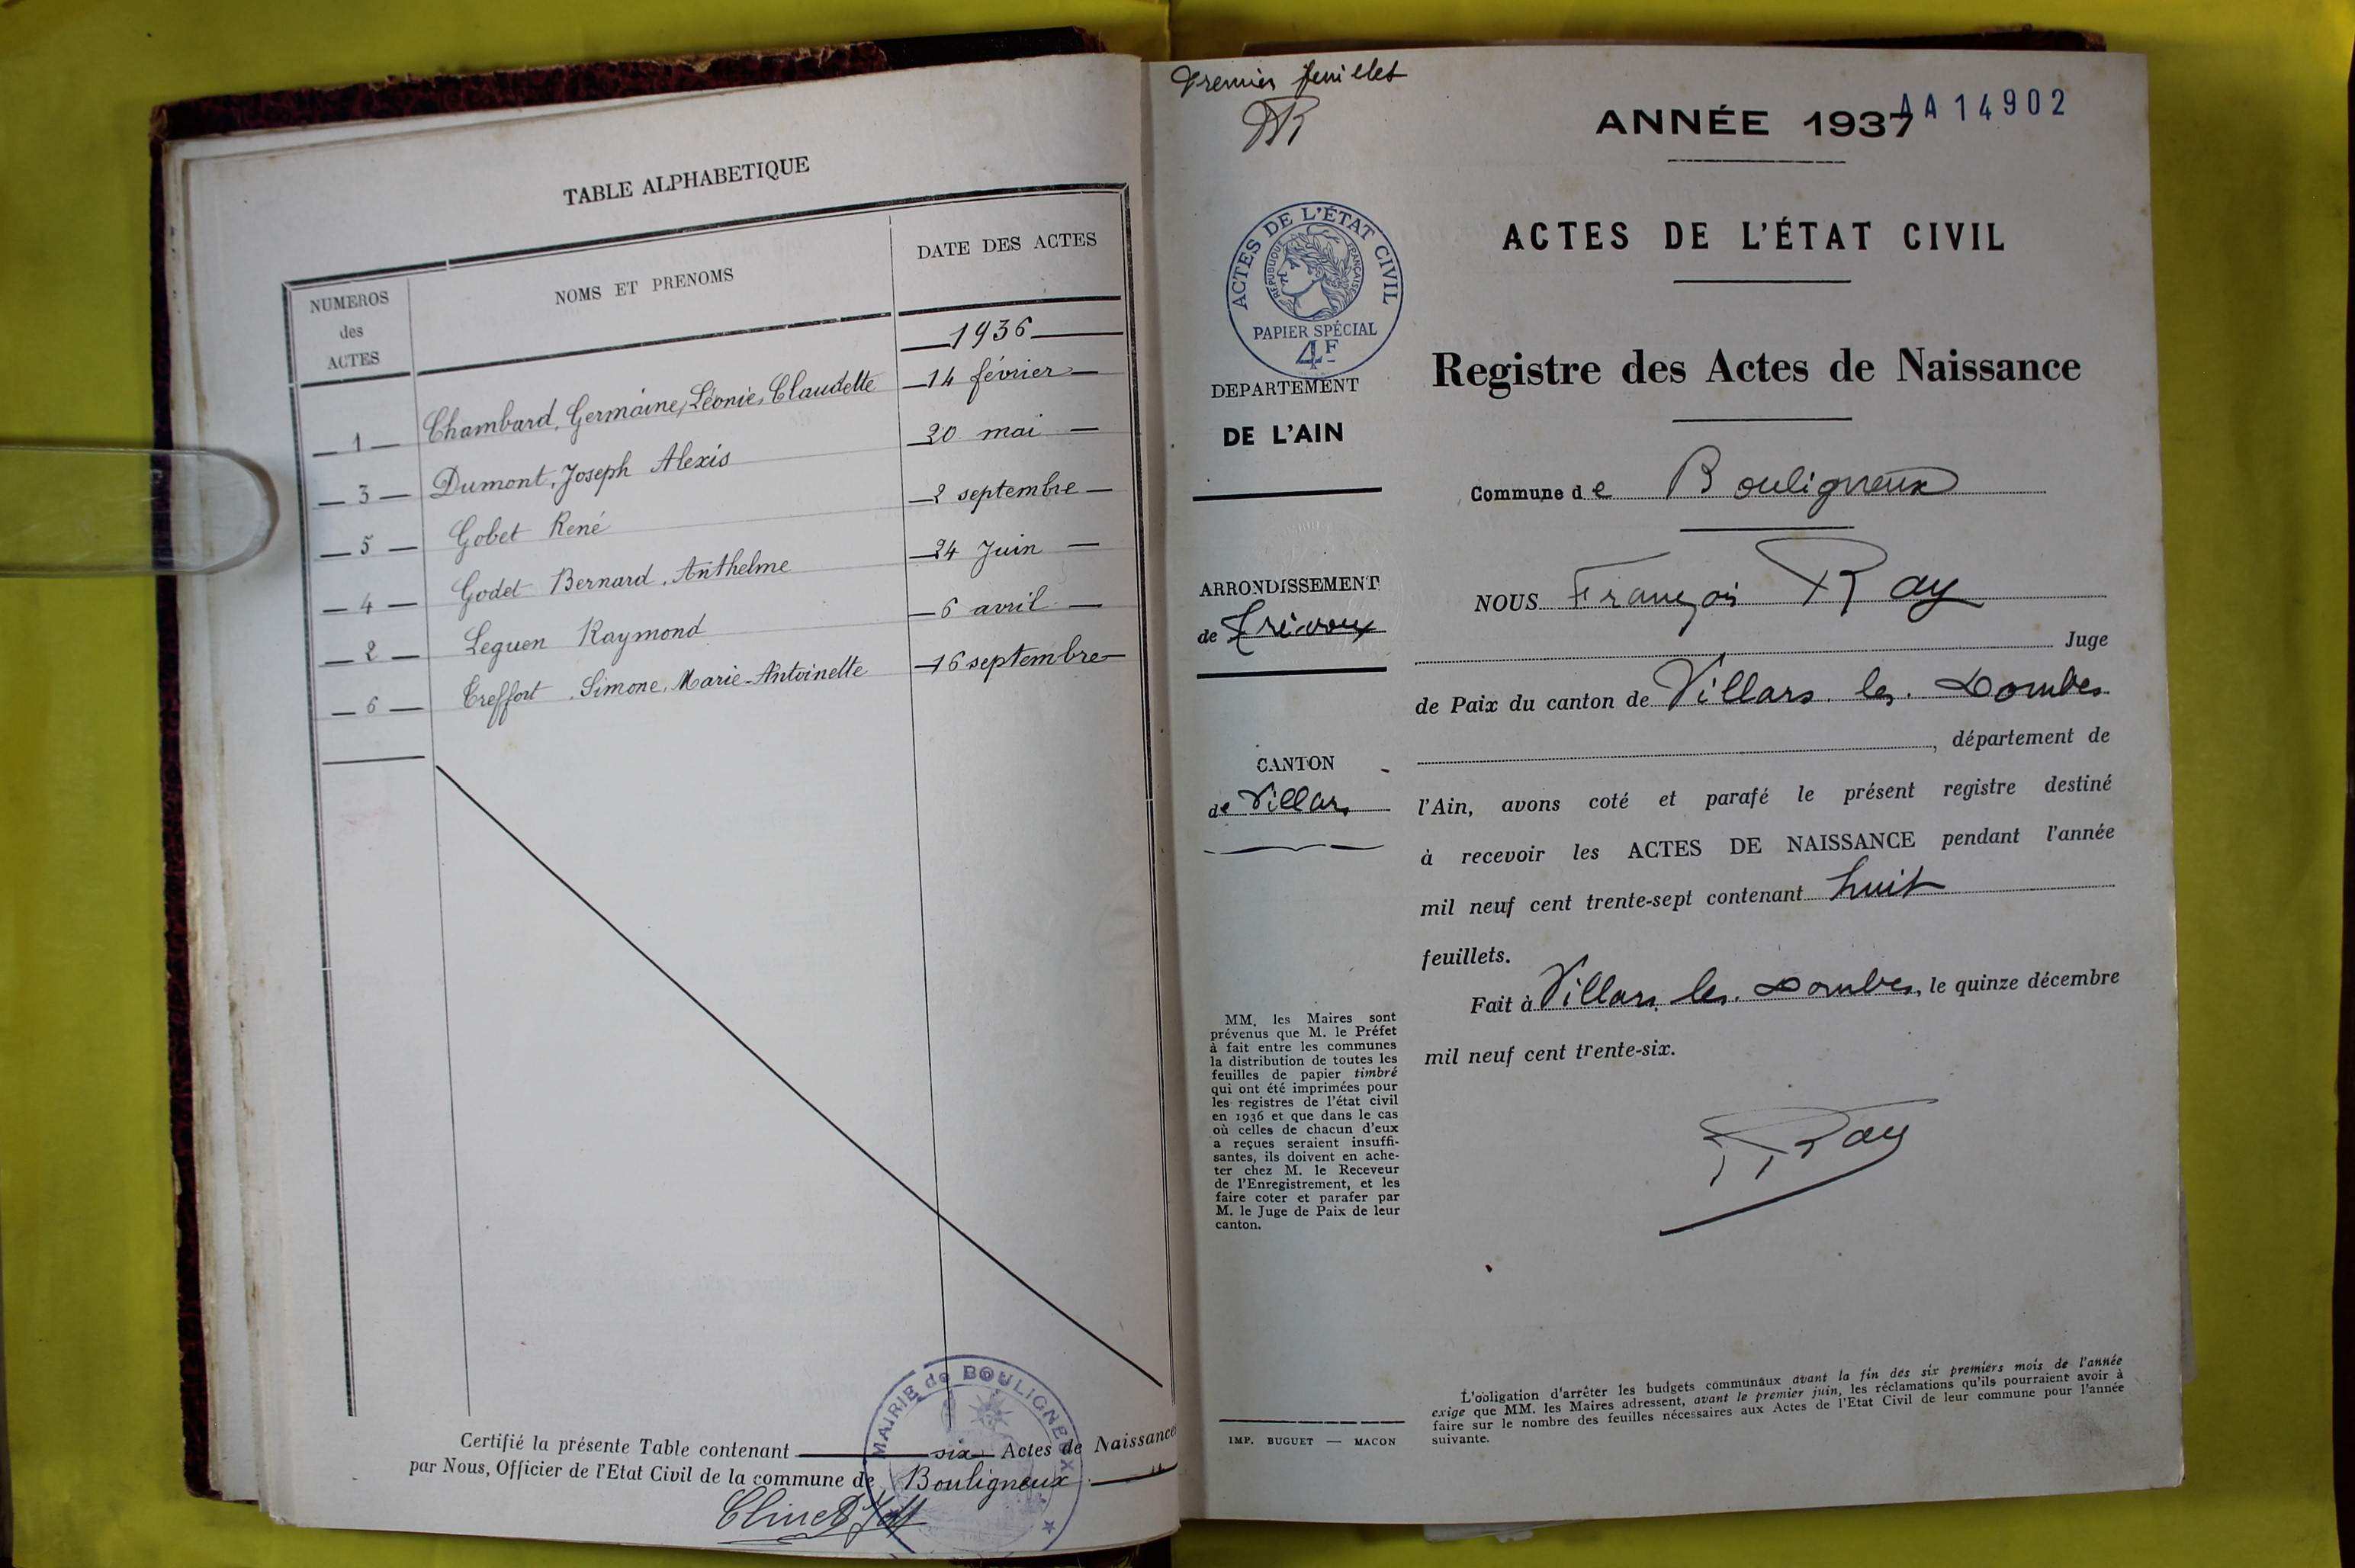 TABLE ALPHABETIQUE
NUMEROS
des
ACTES
NOMS ET PRENOMS
DATE DES ACTES
1936
1 Chambard, Germaine, Léonie, Claudette 14 février
3 Dumont, Joseph Alexis 20 mai
5 Gobet René 2 septembre
4 Godet Bernard, Anthelme 24 Juin
2 Leguen Raymond 6 avril
6 Treffort, Simone, Marie-Antoinette 16 septembre
Certifié la présente Table contenant six Actes de Naissance
par Nous, Officier de l'Etat Civil de la commune de Bouligneux
MAIRIE de BOULIGNEUX
Premier feuillet
ANNÉE 1937
AA14902
ACTES DE L'ÉTAT CIVIL
RÉPUBLIQUE FRANÇAISE
PAPIER SPÉCIAL
4F
DEPARTEMENT
DE L'AIN
ARRONDISSEMENT
de Trévoux
CANTON
de Villars
MM. les Maires sont
prévenus que M. le Préfet
à fait entre les communes
la distribution de toutes les
feuilles de papier timbré
qui ont été imprimées pour
les registres de l'état civil
en 1936 et que dans le cas
où celles de chacun d'eux
a reçues seraient insuffi-
santes, ils doivent en ache-
ter chez M. le Receveur
de l'Enregistrement, et les
faire coter et parafer par
M. le Juge de Paix de leur
canton.
IMP. BUGUET — MACON
ACTES DE L'ÉTAT CIVIL
Registre des Actes de Naissance
Commune de Bouligneux
NOUS François Ray
Juge
de Paix du canton de Villars les Dombes
, département de
l'Ain, avons coté et parafé le présent registre destiné
à recevoir les ACTES DE NAISSANCE pendant l'année
mil neuf cent trente-sept contenant huit
feuillets.
Fait à Villars les Dombes, le quinze décembre
mil neuf cent trente-six.
Ray
L'obligation d'arrêter les budgets communaux avant la fin des six premiers mois de l'année
exige que MM. les Maires adressent, avant le premier juin, les réclamations qu'ils pourraient avoir à
faire sur le nombre des feuilles nécessaires aux Actes de l'Etat Civil de leur commune pour l'année
suivante.